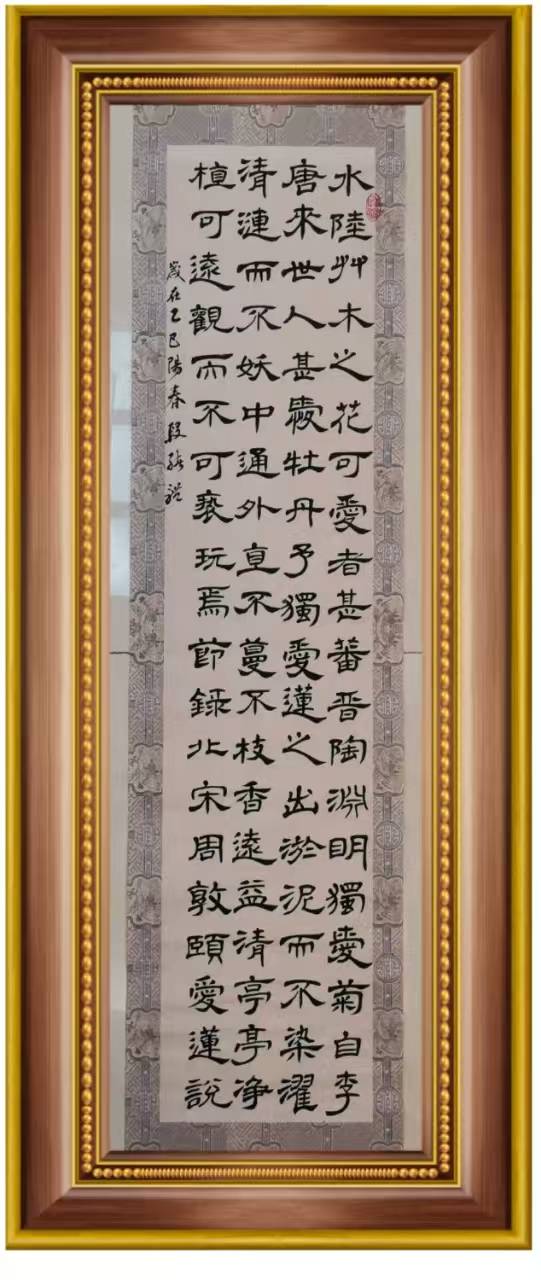 水陸艸木之花可愛者甚蕃晋陶淵明獨愛菊自李
唐來世人甚愛牡丹予獨愛蓮之出淤泥而不染濯
清漣而不妖中通外直不蔓不枝香遠益清亭亭净
植可遠觀而不可褻玩焉節錄北宋周敦頤愛蓮說
歲在乙巳陽春段